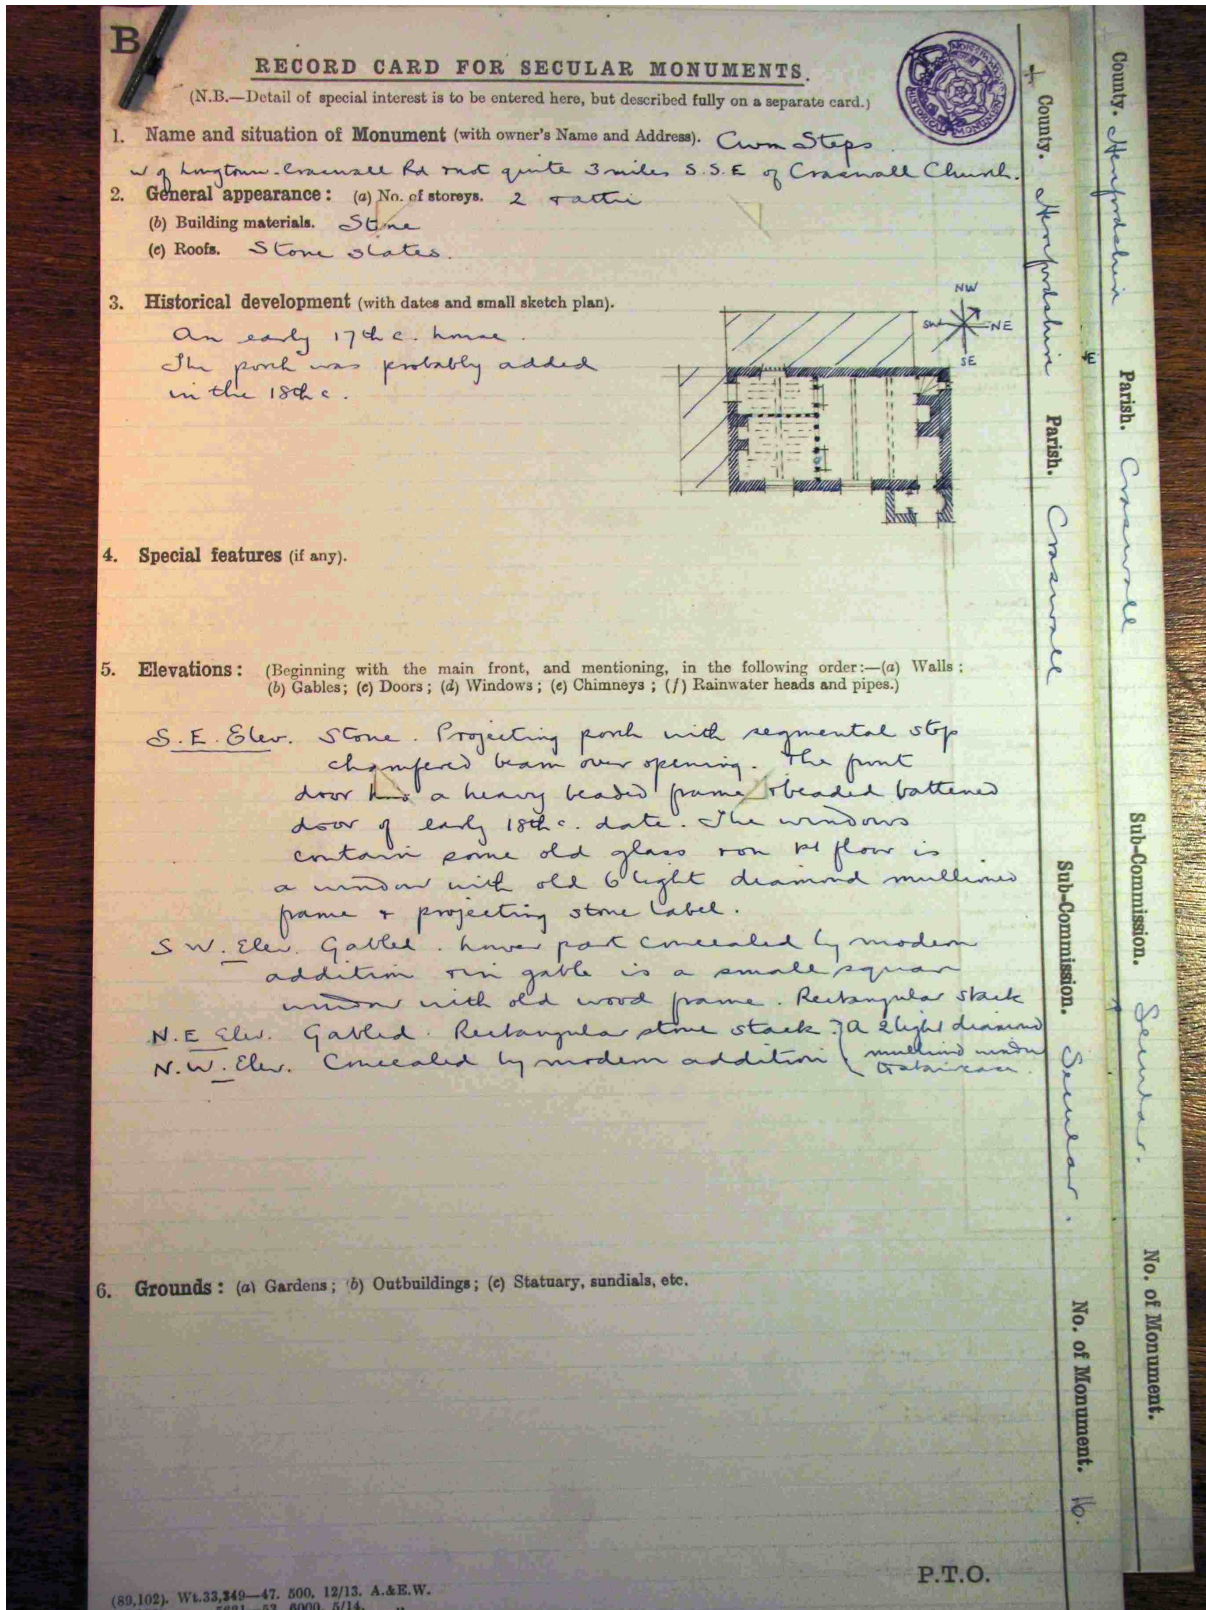 B
RECORD CARD FOR SECULAR MONUMENTS.
(N.B.—Detail of special interest is to be entered here, but described fully on a separate card.)
1. Name and situation of Monument (with owner's Name and Address). Cwm Steps
W of Longtown-Craswall Rd & not quite 3 miles S.S.E of Craswall Church.
2. General appearance: (a) No. of storeys. 2 & attic
(b) Building materials. Stone
(c) Roofs. Stone slates.
3. Historical development (with dates and small sketch plan).
An early 17th c. house.
The porch was probably added
in the 18th c.
NW
SW
NE
SE
4. Special features (if any).
5. Elevations: (Beginning with the main front, and mentioning, in the following order:—(a) Walls;
(b) Gables; (c) Doors; (d) Windows; (e) Chimneys; (f) Rainwater heads and pipes.)
S.E. Elev. Stone. Projecting porch with segmental stop
chamfered beam over opening. The front
door has a heavy beaded frame & beaded battened
door of early 18th c. date. The windows
contain some old glass & on 1st floor is
a window with old 6 light diamond mullioned
frame & projecting stone label.
S W. Elev. Gabled. Lower part concealed by modern
addition & in gable is a small square
window with old wood frame. Rectangular stack
N.E Elev. Gabled. Rectangular stone stack. & A 2 light diamond
mullioned window
to staircase.
N.W. Elev. Concealed by modern addition
6. Grounds: (a) Gardens; (b) Outbuildings; (c) Statuary, sundials, etc.
P.T.O.
(89,102). Wt.33,349—47. 500. 12/13. A.&E.W.
5631—53. 6000. 5/14. „
County. Herefordshire Parish. Craswall Sub-Commission. Secular. No. of Monument. 16.
County. Herefordshire Parish. Craswall Sub-Commission. Secular. No. of Monument.